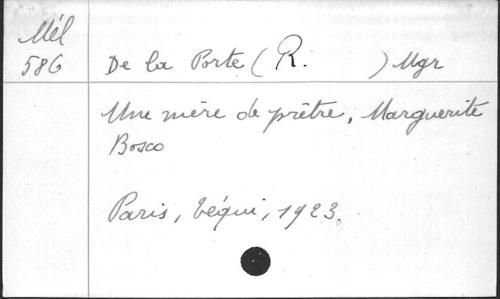 Mél
586
De la Porte (R. ) Mgr
Une mère de prêtre, Marguerite
Bosco
Paris, Téqui, 1923.